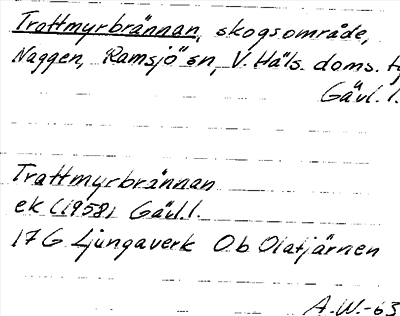 Trattmyrbrännan, skogsområde,
Naggen, Ramsjö sn, V. Häls. doms.
Gävl. l.
Trattmyrbrännan
ek (1958) Gävl. l.
17 G Ljungaverk 0b Olatjärnen
A.W.-63